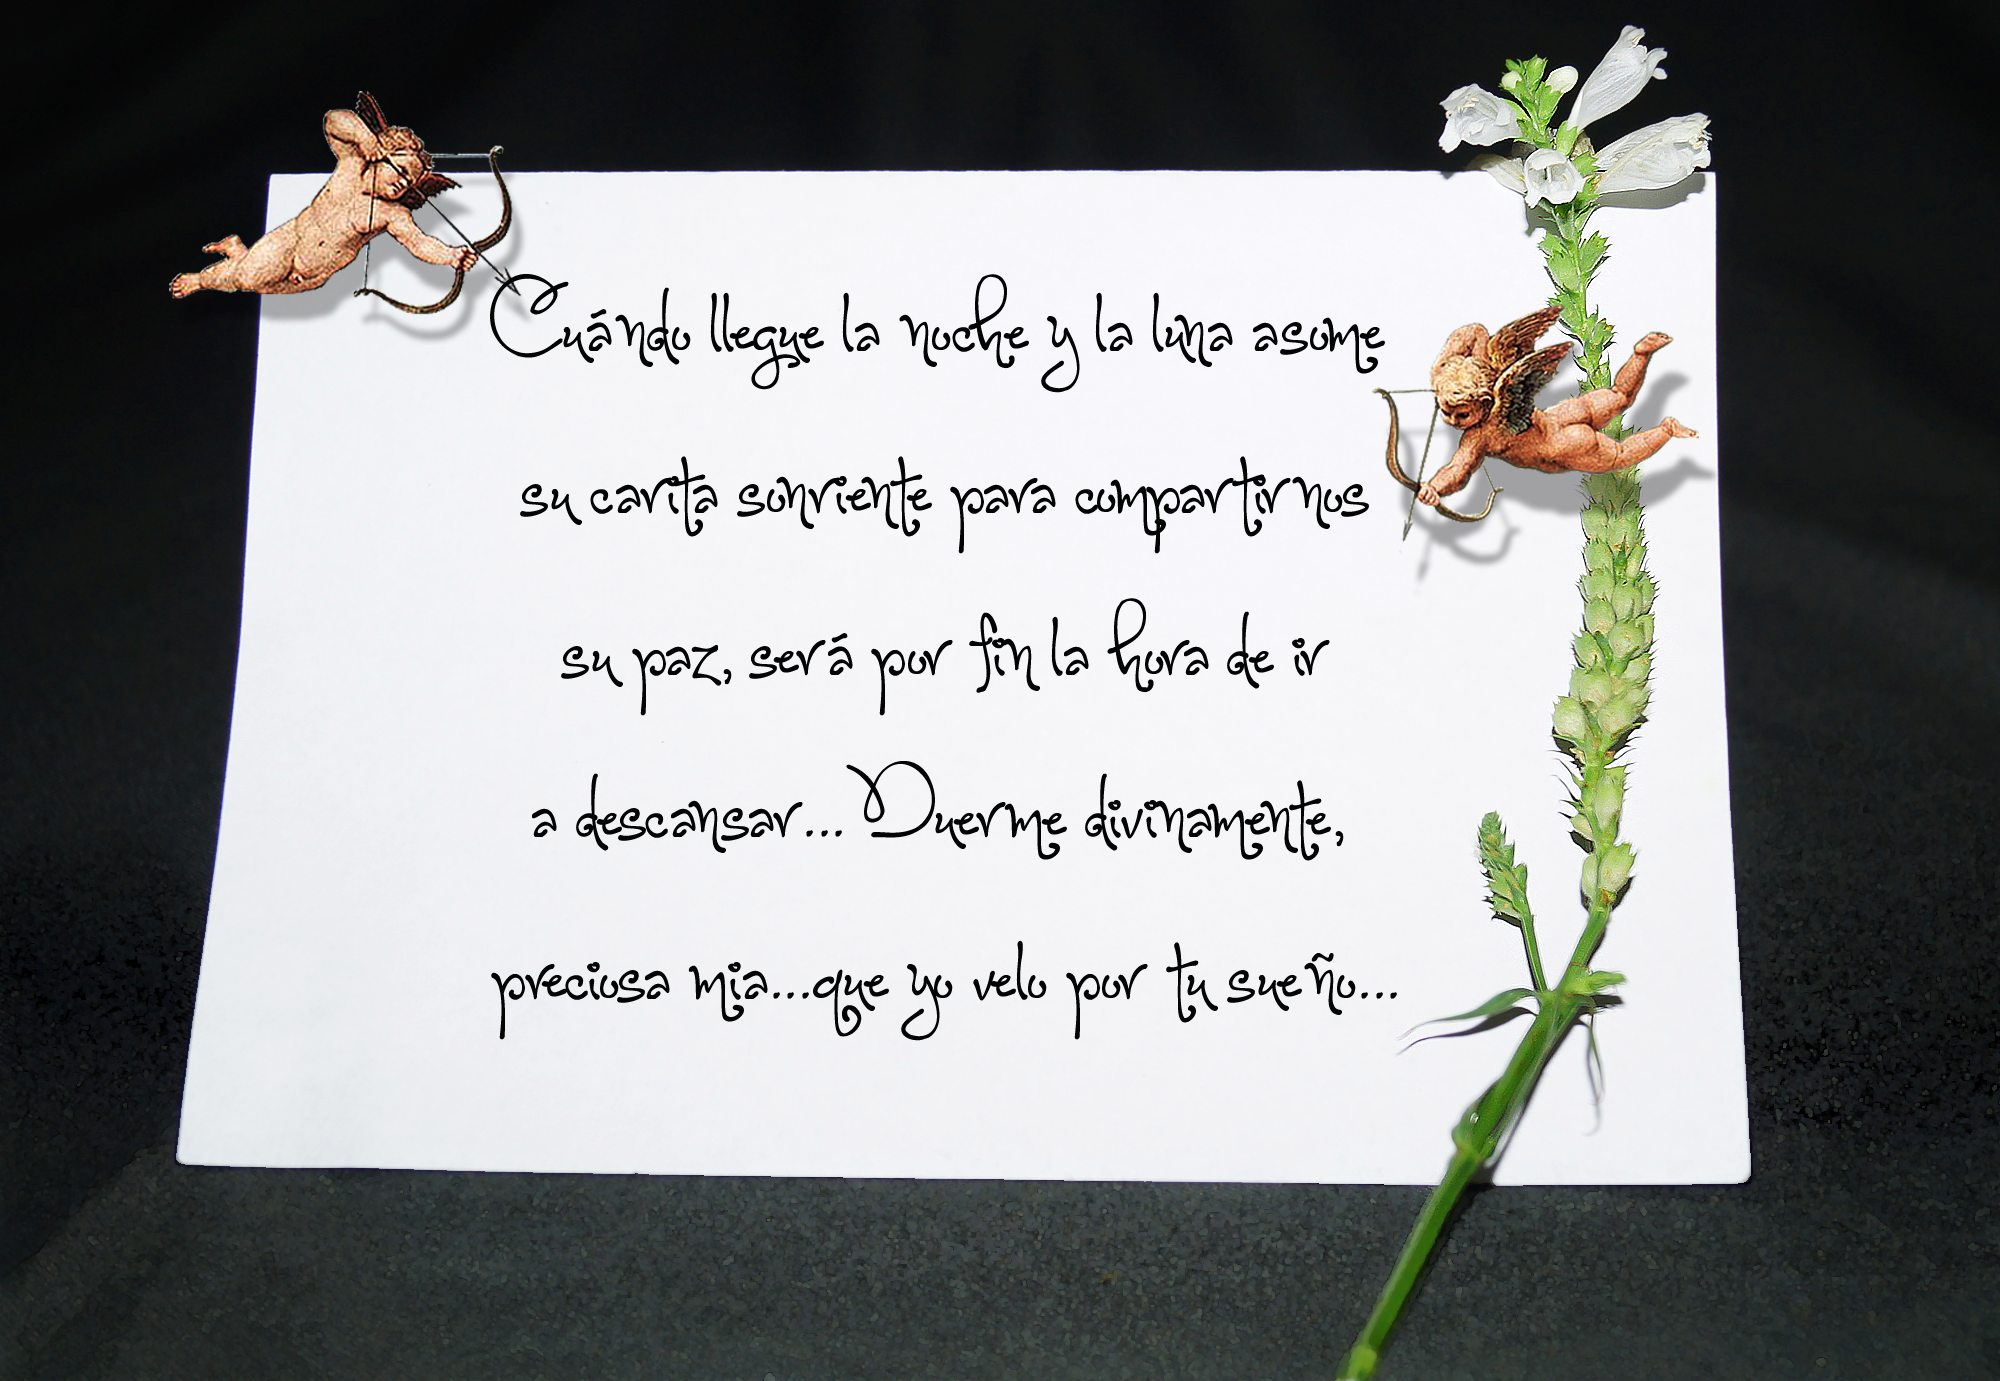 Cuándo llegue la noche y la luna asome
su carita sonriente para compartirnos
su paz, será por fin la hora de ir
a descansar... Duerme divinamente,
preciosa mia...que yo velo por tu sueño...